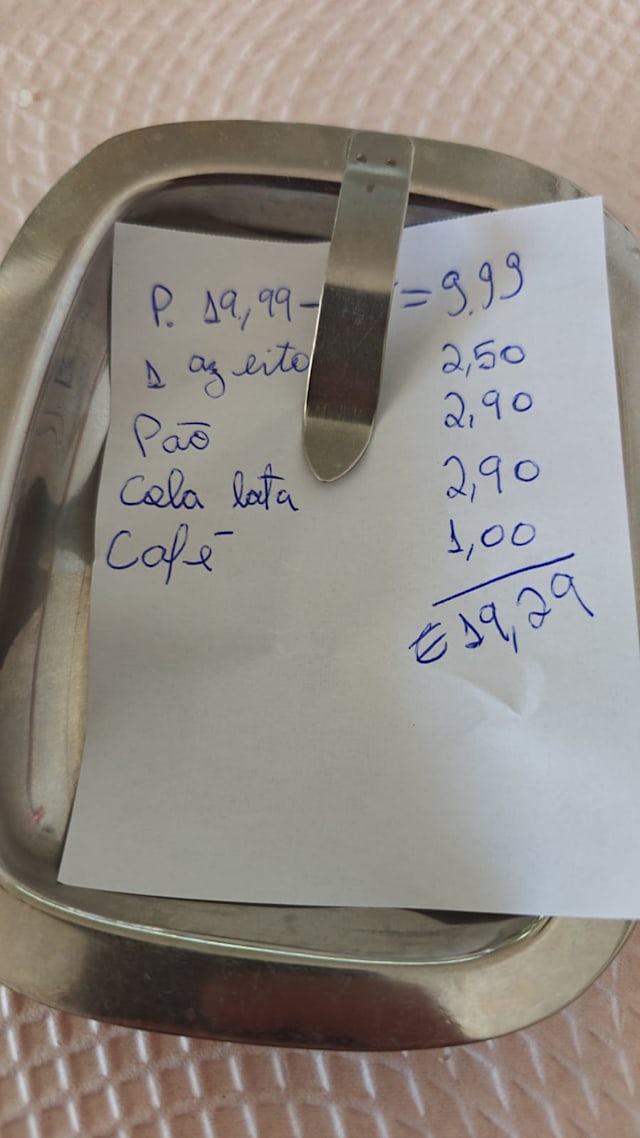 P. 19,99 - = 9.99
1 azeito 2,50
Pão 2,90
Cola lata 2,90
Café 1,00
€ 19,29